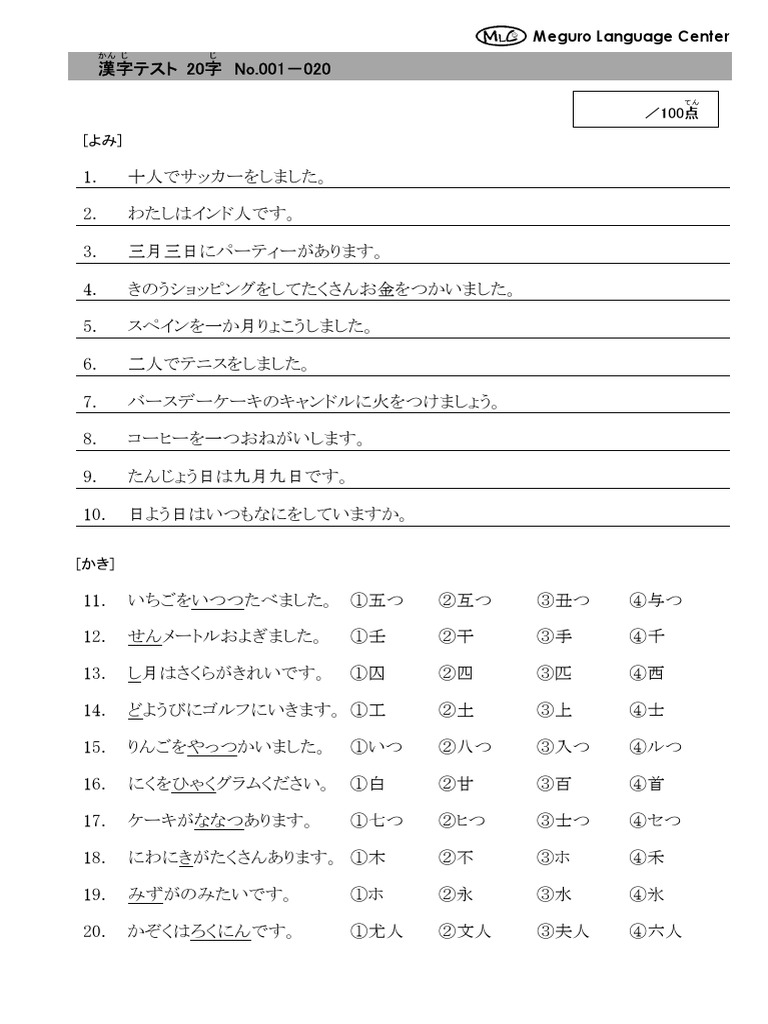 MLC Meguro Language Center
かんじ じ
漢字テスト 20字 No.001－020
てん
／100点
[よみ]
1. 十人でサッカーをしました。
2. わたしはインド人です。
3. 三月三日にパーティーがあります。
4. きのうショッピングをしてたくさんお金をつかいました。
5. スペインを一か月りょこうしました。
6. 二人でテニスをしました。
7. バースデーケーキのキャンドルに火をつけましょう。
8. コーヒーを一つおねがいします。
9. たんじょう日は九月九日です。
10. 日よう日はいつもなにをしていますか。
[かき]
11. いちごをいつつたべました。 ①五つ ②互つ ③丑つ ④与つ
12. せんメートルおよぎました。 ①壬 ②干 ③手 ④千
13. し月はさくらがきれいです。 ①囚 ②四 ③匹 ④西
14. どようびにゴルフにいきます。 ①工 ②土 ③上 ④士
15. りんごをやっつかいました。 ①いつ ②八つ ③入つ ④ルつ
16. にくをひゃくグラムください。 ①白 ②甘 ③百 ④首
17. ケーキがななつあります。 ①七つ ②ヒつ ③士つ ④セつ
18. にわにきがたくさんあります。 ①木 ②不 ③ホ ④禾
19. みずがのみたいです。 ①ホ ②永 ③水 ④氷
20. かぞくはろくにんです。 ①尤人 ②文人 ③夫人 ④六人